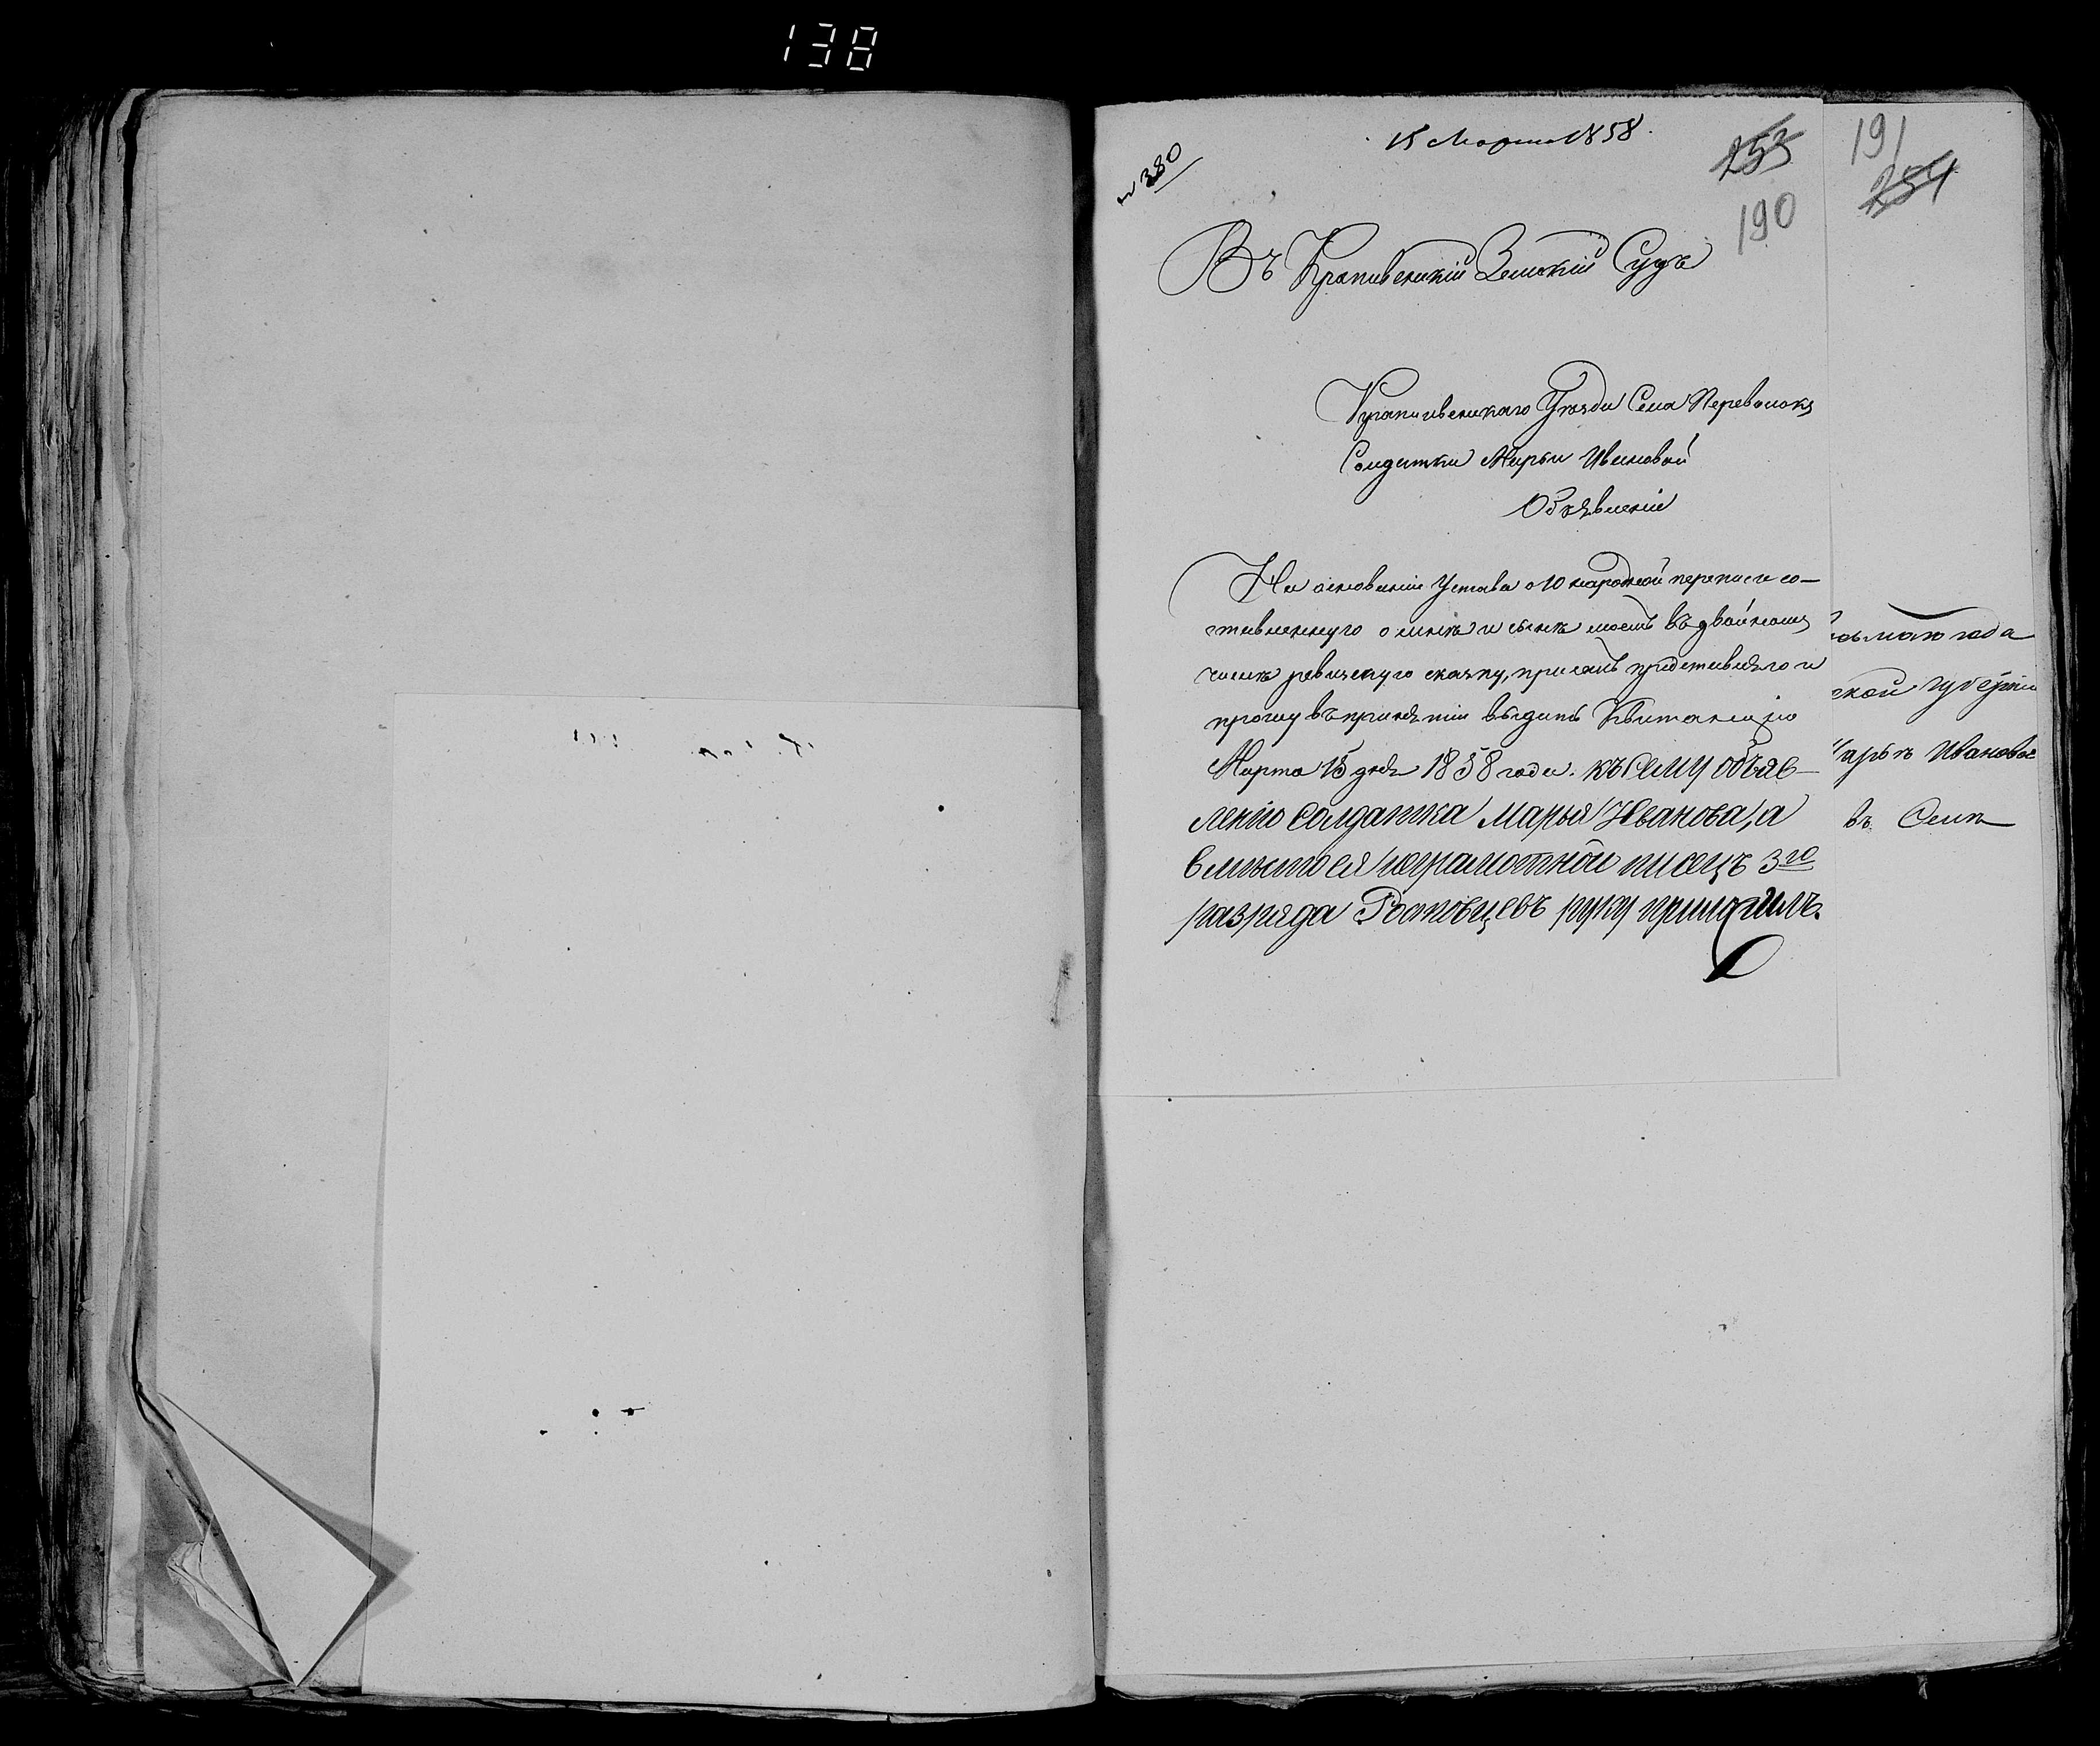 138
15 Марта 1858.
№ 380
253
190
191
254
Въ Крапивенскій Земскій Судъ
Крапивенскаго Уѣзда Села Переволокъ
Солдатки Марьи Ивановой
Объявленіе
На основаніи Устава о 10 народной переписи со-
ставленную о мнѣ и сынѣ моемъ въ двойномъ
числѣ ревизскую сказку, при семъ представляя и
прошу въ принятіи выдать Квитанцію
Марта 15 дня 1858 года. Къ сему объяв-
ленію Солдатка Марья Иванова, а
вмѣсто ея неграмотной писецъ 3го
разряда Ростовцевъ руку приложилъ.
года
ской губерніи
Марьѣ Ивановой
въ Селѣ